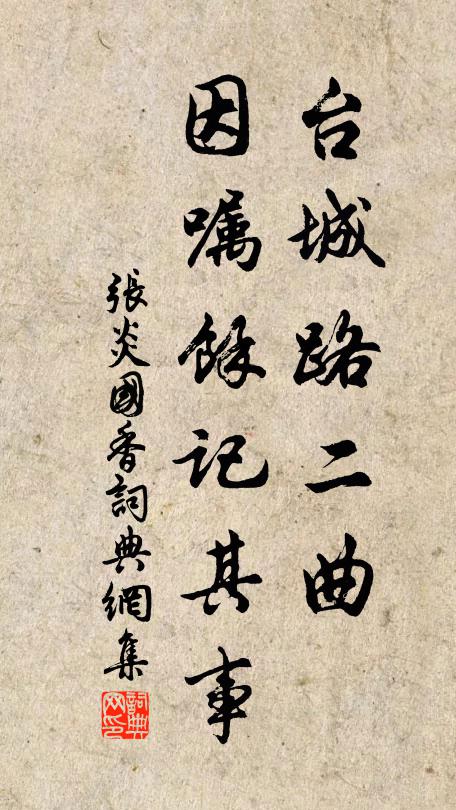 台城路二曲
因嘱餘記其事
張炎國香詞典網集
詞典网印